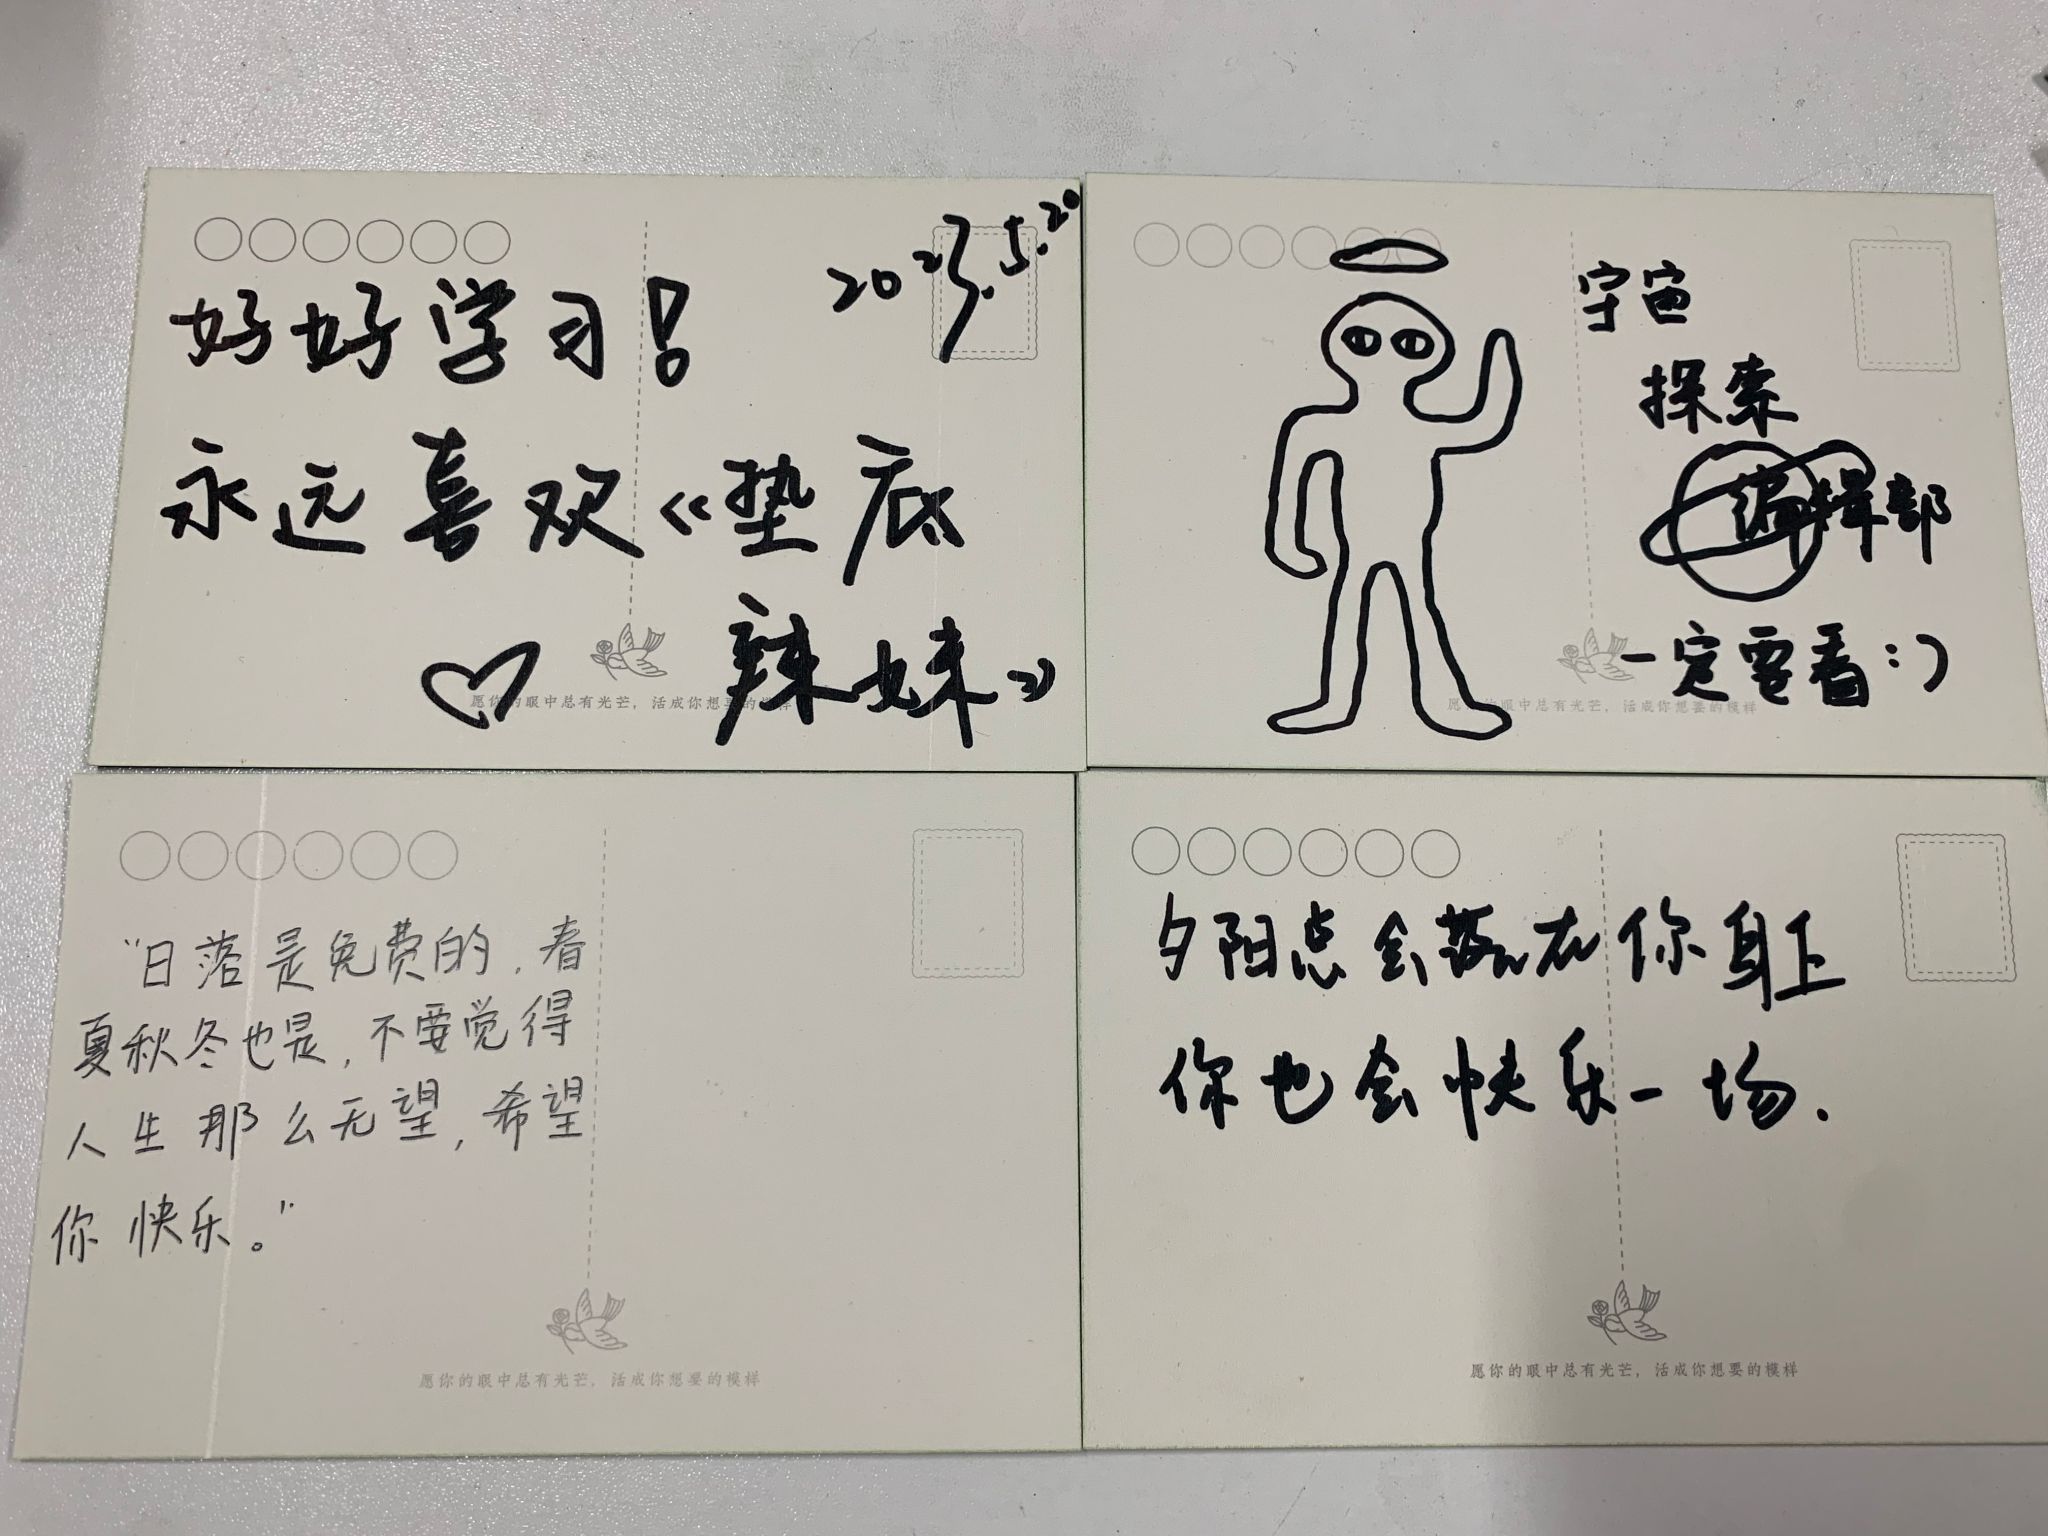 2023.5.20
好好学习！
永远喜欢《垫底
辣妹》
愿你的眼中总有光芒，活成你想要的模样
宇宙
探索
编辑部
一定要看:)
愿你的眼中总有光芒，活成你想要的模样
“日落是免费的，春
夏秋冬也是，不要觉得
人生那么无望，希望
你快乐。”
愿你的眼中总有光芒，活成你想要的模样
夕阳总会落在你身上
你也会快乐一场.
愿你的眼中总有光芒，活成你想要的模样